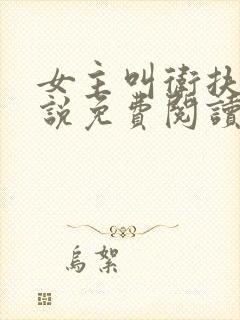 女主叫衛扶
說免費閱讀
烏絮